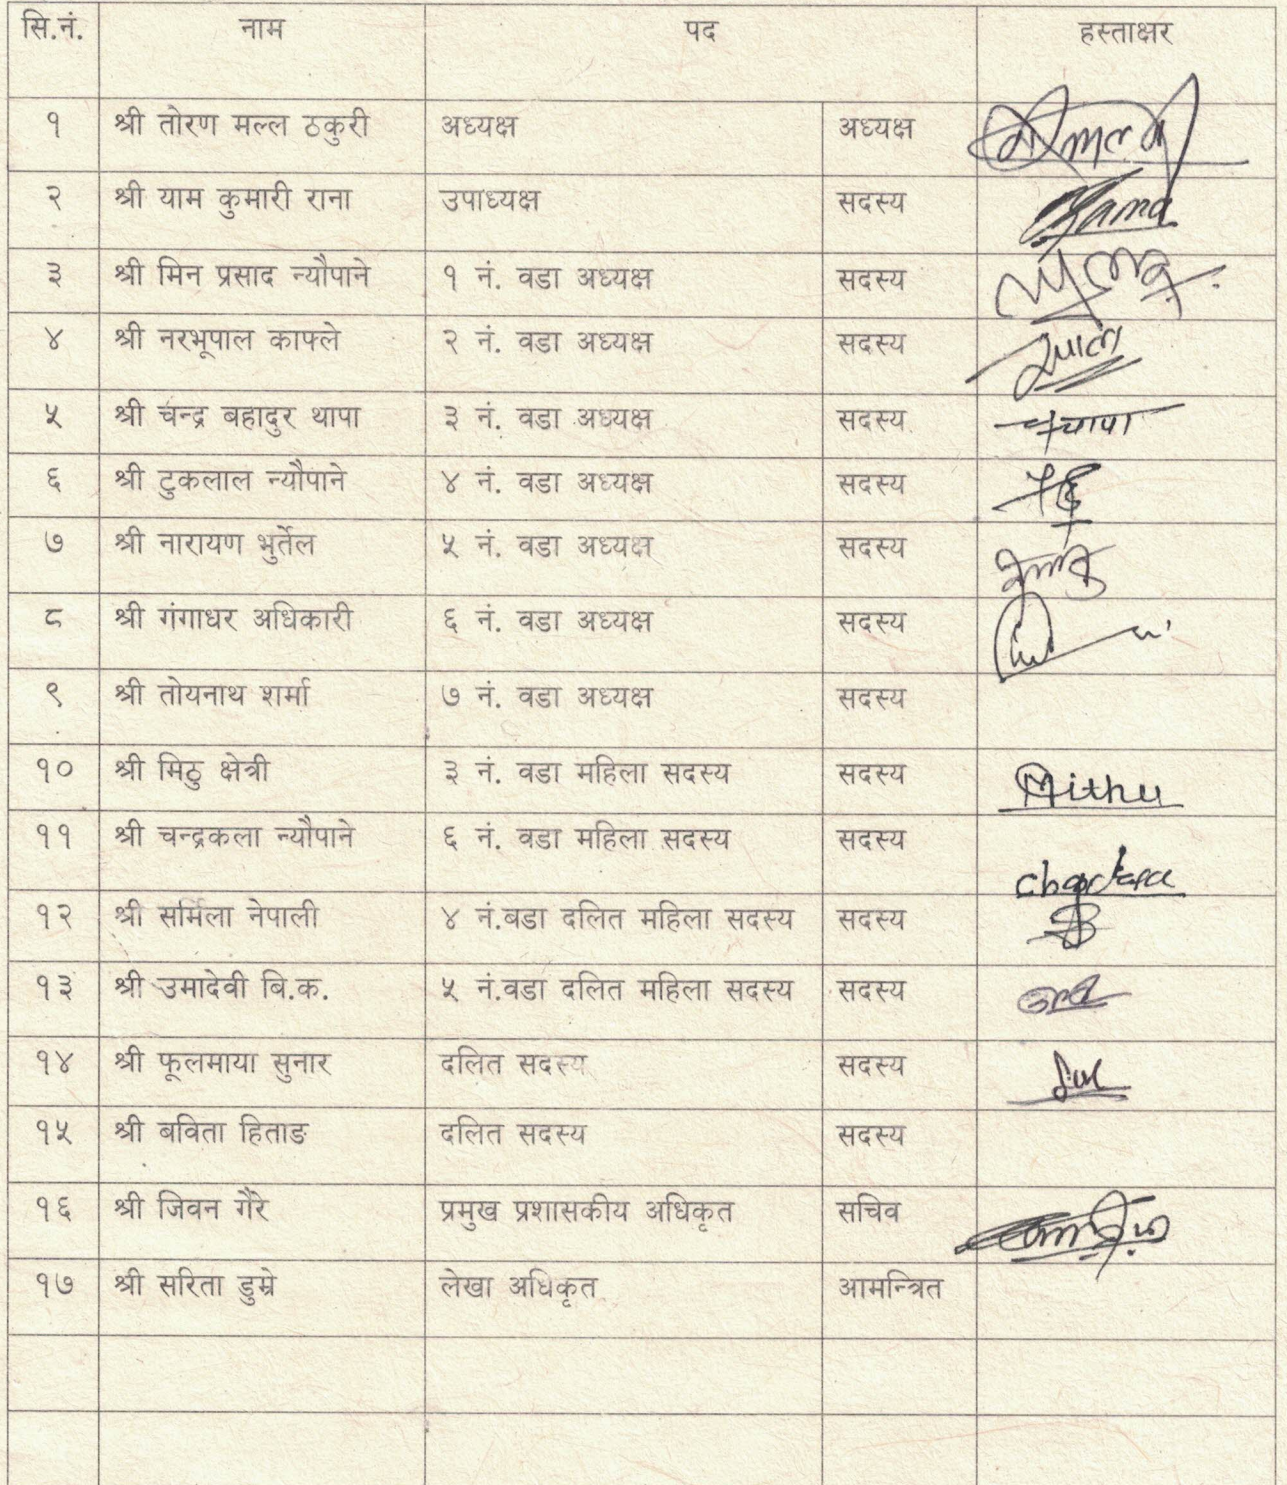 सि.नं. नाम पद हस्ताक्षर
१ श्री तोरण मल्ल ठकुरी अध्यक्ष अध्यक्ष
२ श्री याम कुमारी राना उपाध्यक्ष सदस्य
३ श्री मिन प्रसाद न्यौपाने १ नं. वडा अध्यक्ष सदस्य
४ श्री नरभूपाल काफ्ले २ नं. वडा अध्यक्ष सदस्य
५ श्री चन्द्र बहादुर थापा ३ नं. वडा अध्यक्ष सदस्य
६ श्री टुकलाल न्यौपाने ४ नं. वडा अध्यक्ष सदस्य
७ श्री नारायण भुर्तेल ५ नं. वडा अध्यक्ष सदस्य
८ श्री गंगाधर अधिकारी ६ नं. वडा अध्यक्ष सदस्य
९ श्री तोयनाथ शर्मा ७ नं. वडा अध्यक्ष सदस्य
१० श्री मिठु क्षेत्री ३ नं. वडा महिला सदस्य सदस्य Mithu
११ श्री चन्द्रकला न्यौपाने ६ नं. वडा महिला सदस्य सदस्य
१२ श्री सर्मिला नेपाली ४ नं.वडा दलित महिला सदस्य सदस्य
१३ श्री उमादेवी बि.क. ५ नं.वडा दलित महिला सदस्य सदस्य
१४ श्री फूलमाया सुनार दलित सदस्य सदस्य
१५ श्री बविता हिताङ दलित सदस्य सदस्य
१६ श्री जिवन गैरे प्रमुख प्रशासकीय अधिकृत सचिव
१७ श्री सरिता डुम्रे लेखा अधिकृत आमन्त्रित